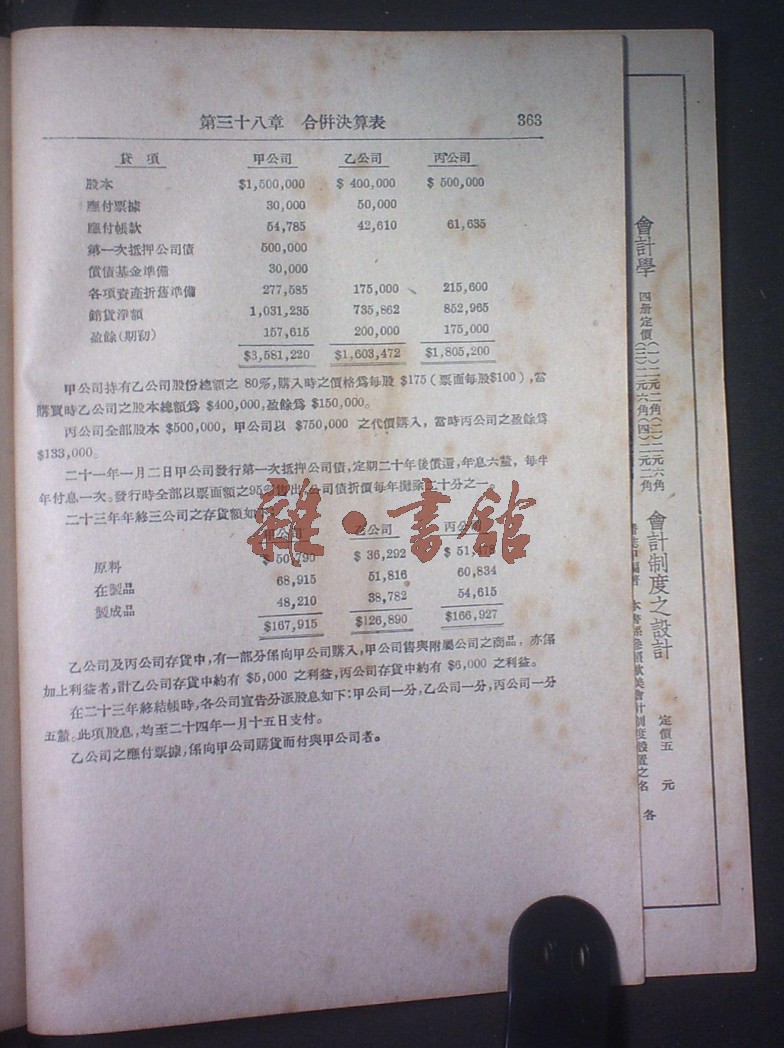 第三十八章 合併決算表 363
貸項 甲公司 乙公司 丙公司
股本 $1,500,000 $ 400,000 $ 500,000
應付票據 30,000 50,000
應付帳款 54,785 42,610 61,635
第一次抵押公司債 500,000
償債基金準備 30,000
各項資產折舊準備 277,585 175,000 215,600
銷貨淨額 1,031,235 735,862 852,965
盈餘(期初) 157,615 200,000 175,000
$3,581,220 $1,603,472 $1,805,200
甲公司持有乙公司股份總額之 80%,購入時之價格爲每股 $175(票面每股$100),當
購買時乙公司之股本總額爲 $400,000,盈餘爲 $150,000。
丙公司全部股本 $500,000, 甲公司以 $750,000 之代價購入, 當時丙公司之盈餘爲
$133,000。
二十一年一月二日甲公司發行第一次抵押公司債,定期二十年後償還,年息六釐, 每半
年付息一次。發行時全部以票面額之95%售出,公司債折價每年攤除二十分之一。
二十三年年終三公司之存貨額如下:
甲公司 乙公司 丙公司
原料 $ 50,790 $ 36,292 $ 51,478
在製品 68,915 51,816 60,834
製成品 48,210 38,782 54,615
$167,915 $126,890 $166,927
乙公司及丙公司存貨中,有一部分係向甲公司購入,甲公司售與附屬公司之商品, 亦係
加上利益者,計乙公司存貨中約有 $5,000 之利益,丙公司存貨中約有 $6,000 之利益。
在二十三年終結帳時,各公司宣告分派股息如下:甲公司一分,乙公司一分,丙公司一分
五釐。此項股息,均至二十四年一月十五日支付。
乙公司之應付票據,係向甲公司購貨而付與甲公司者。
雜·書館
會計學 四册定價(一)二元二角(二)二元六角(三)二元六角(四)二元二角
會計制度之設計 定價五元
本書係參照歐美會計制度設置之名 各